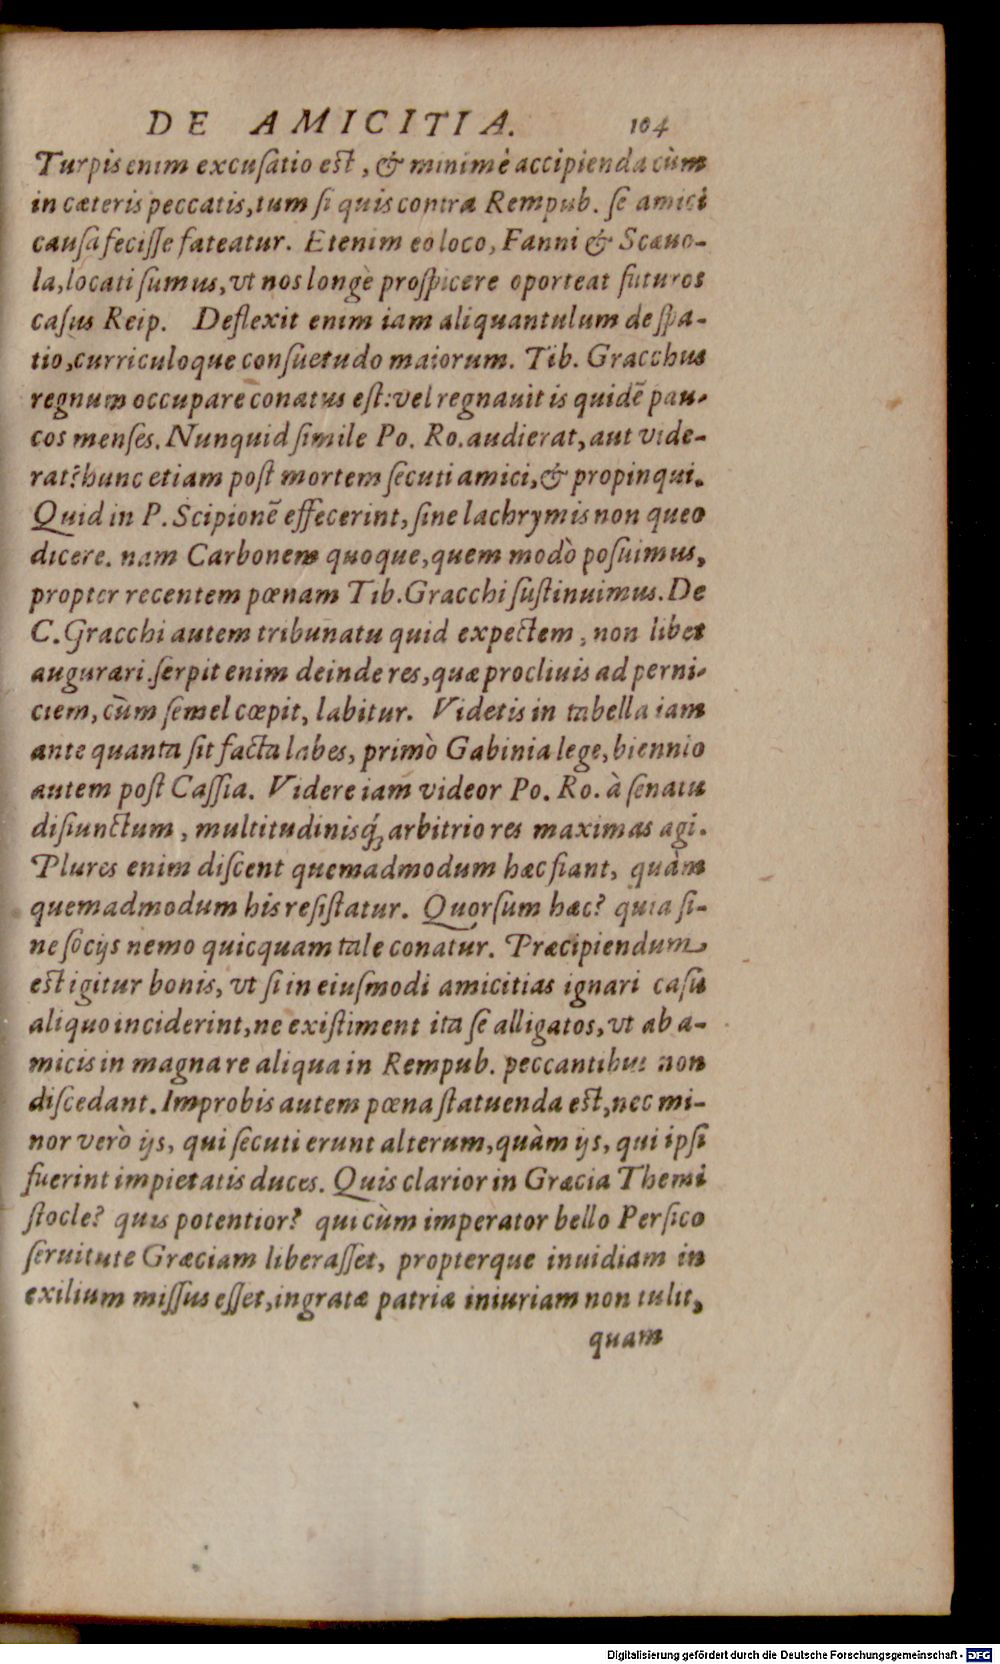 DE AMICITIA. 104
Turpis enim excusatio est, & minimè accipienda cùm
in cæteris peccatis, tum si quis contra Rempub. se amici
causa fecisse fateatur. Etenim eo loco, Fanni & Scæuo-
la, locati sumus, vt nos longè prospicere oporteat futuros
casus Reip. Deflexit enim iam aliquantulum de spa-
tio, curriculoque consuetudo maiorum. Tib. Gracchus
regnum occupare conatus est: vel regnauit is quidē pau-
cos menses. Nunquid simile Po. Ro. audierat, aut vide-
rat? hunc etiam post mortem secuti amici, & propinqui.
Quid in P. Scipionē effecerint, sine lachrymis non queo
dicere. nam Carbonem quoque, quem modò posuimus,
propter recentem pœnam Tib. Gracchi sustinuimus. De
C. Gracchi autem tribunatu quid expectem, non libet
augurari. serpit enim deinde res, quæ procliuis ad perni-
ciem, cùm semel cœpit, labitur. Videtis in tabella iam
ante quanta sit facta labes, primò Gabinia lege, biennio
autem post Cassia. Videre iam videor Po. Ro. à senatu
disiunctum, multitudinisq́; arbitrio res maximas agi.
Plures enim discent quemadmodum hæc fiant, quàm
quemadmodum his resistatur. Quorsum hæc? quia si-
ne socijs nemo quicquam tale conatur. Præcipiendum
est igitur bonis, vt si in eiusmodi amicitias ignari casu
aliquo inciderint, ne existiment ita se alligatos, vt ab a-
micis in magna re aliqua in Rempub. peccantibus non
discedant. Improbis autem pœna statuenda est, nec mi-
nor verò ijs, qui secuti erunt alterum, quàm ijs, qui ipsi
fuerint impietatis duces. Quis clarior in Græcia Themi
stocle? quis potentior? qui cùm imperator bello Persico
seruitute Græciam liberasset, propterque inuidiam in
exilium missus esset, ingratæ patriæ iniuriam non tulit,
quam
Digitalisierung gefördert durch die Deutsche Forschungsgemeinschaft - DFG